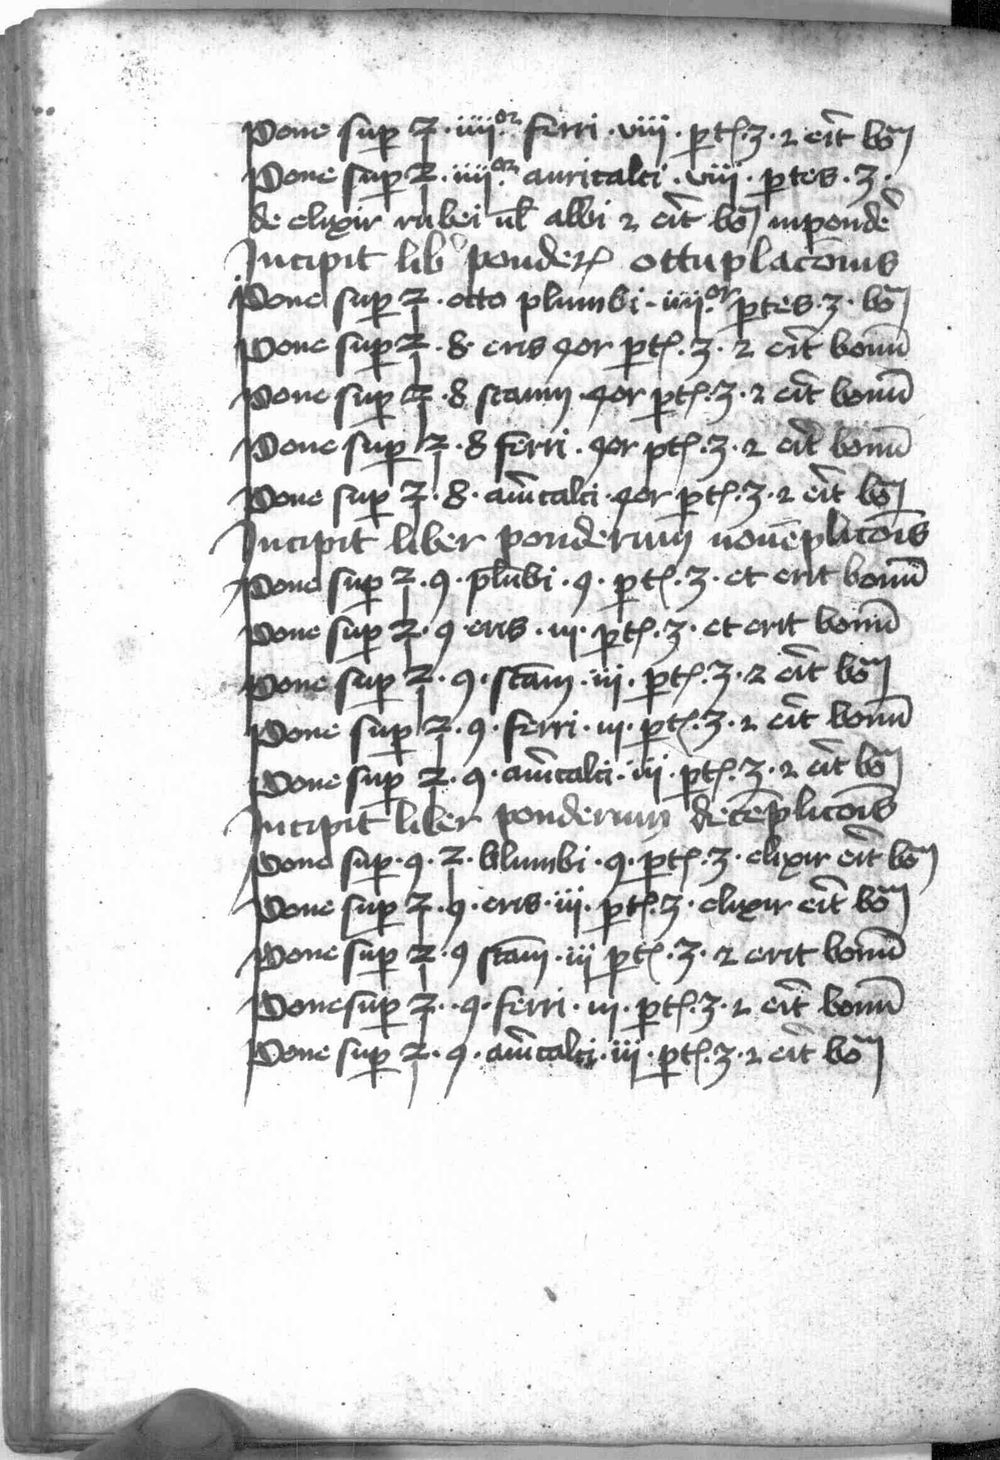 Pone sup ℥ · iiii.or ferri · viii · ptes · ʒ · ⁊ erit bom
Pone sup ℥ · iiii.or auricalci · viii · ptes · ʒ ·
de elixir rubei ul albi ⁊ erit bom inpondē
Incipit lib ponderꝝ ottuplacōnis
Pone sup ℥ · octo plumbi · iiii.or ptes · ʒ · bom
Pone sup ℥ · 8 eris 4or ptes · ʒ · ⁊ erit bonū
Pone sup ℥ · 8 stanni · 4or ptes · ʒ · ⁊ erit bonū
Pone sup ℥ · 8 ferri · 4or ptes · ʒ · ⁊ erit bonū
Pone sup ℥ · 8 · auricalci · 4or ptes · ʒ · ⁊ erit bom
Incipit liber ponderum nouēplicōis
Pone sup ℥ · 9 · plūbi · 9 · ptes · ʒ · et erit bonū
Pone sup ℥ · 9 · eris · iii · ptes · ʒ · et erit bonū
Pone sup ℥ · 9 · stāni · iii · ptes · ʒ · ⁊ erit bom
Pone sup ℥ · 9 · ferri · iii · ptes · ʒ · ⁊ erit bonū
Pone sup ℥ · 9 · auricalci · iii · ptes · ʒ · ⁊ erit bom
Incipit liber ponderum decēplicōis
Pone sup · 9 · ℥ · blumbi · 9 · ptes · ʒ · elixir erit bom
Pone sup ℥ · 9 · eris · iii · ptes · ʒ · elixir erit bom
Pone sup ℥ · 9 stāni · iii ptes · ʒ · ⁊ erit bonū
Pone sup ℥ · 9 · ferri · iii · ptes · ʒ · ⁊ erit bonū
Pone sup ℥ · 9 · auricalci · iii · ptes · ʒ · ⁊ erit bom